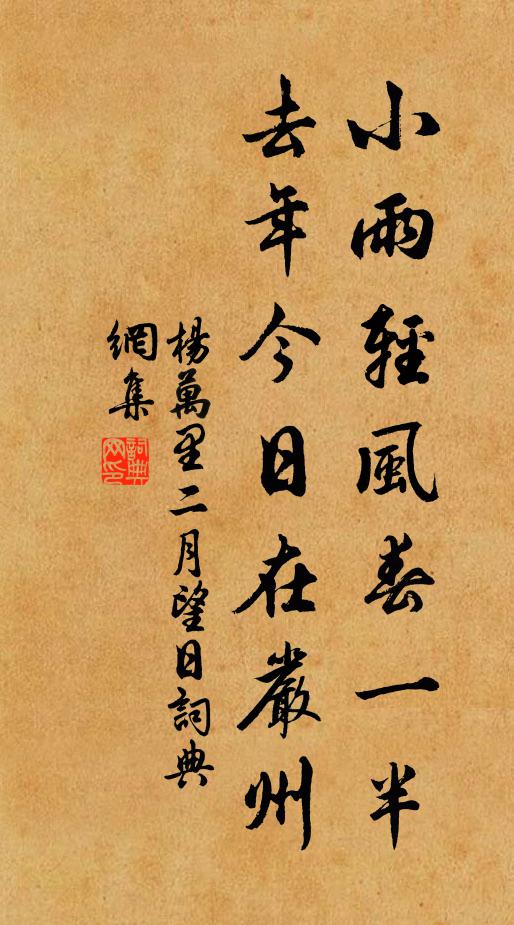 小雨輕風春一半
去年今日在嚴州
楊萬里二月望日詞典
網集
詞典
网印